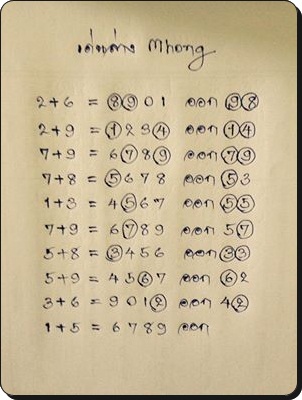 เด่นล่าง Mhong
2+6 = 8901 ออก 98
2+9 = 1234 ออก 14
7+9 = 6789 ออก 79
7+8 = 5678 ออก 53
1+3 = 4567 ออก 55
7+9 = 6789 ออก 57
5+8 = 3456 ออก 33
5+9 = 4567 ออก 62
3+6 = 9012 ออก 42
1+5 = 6789 ออก